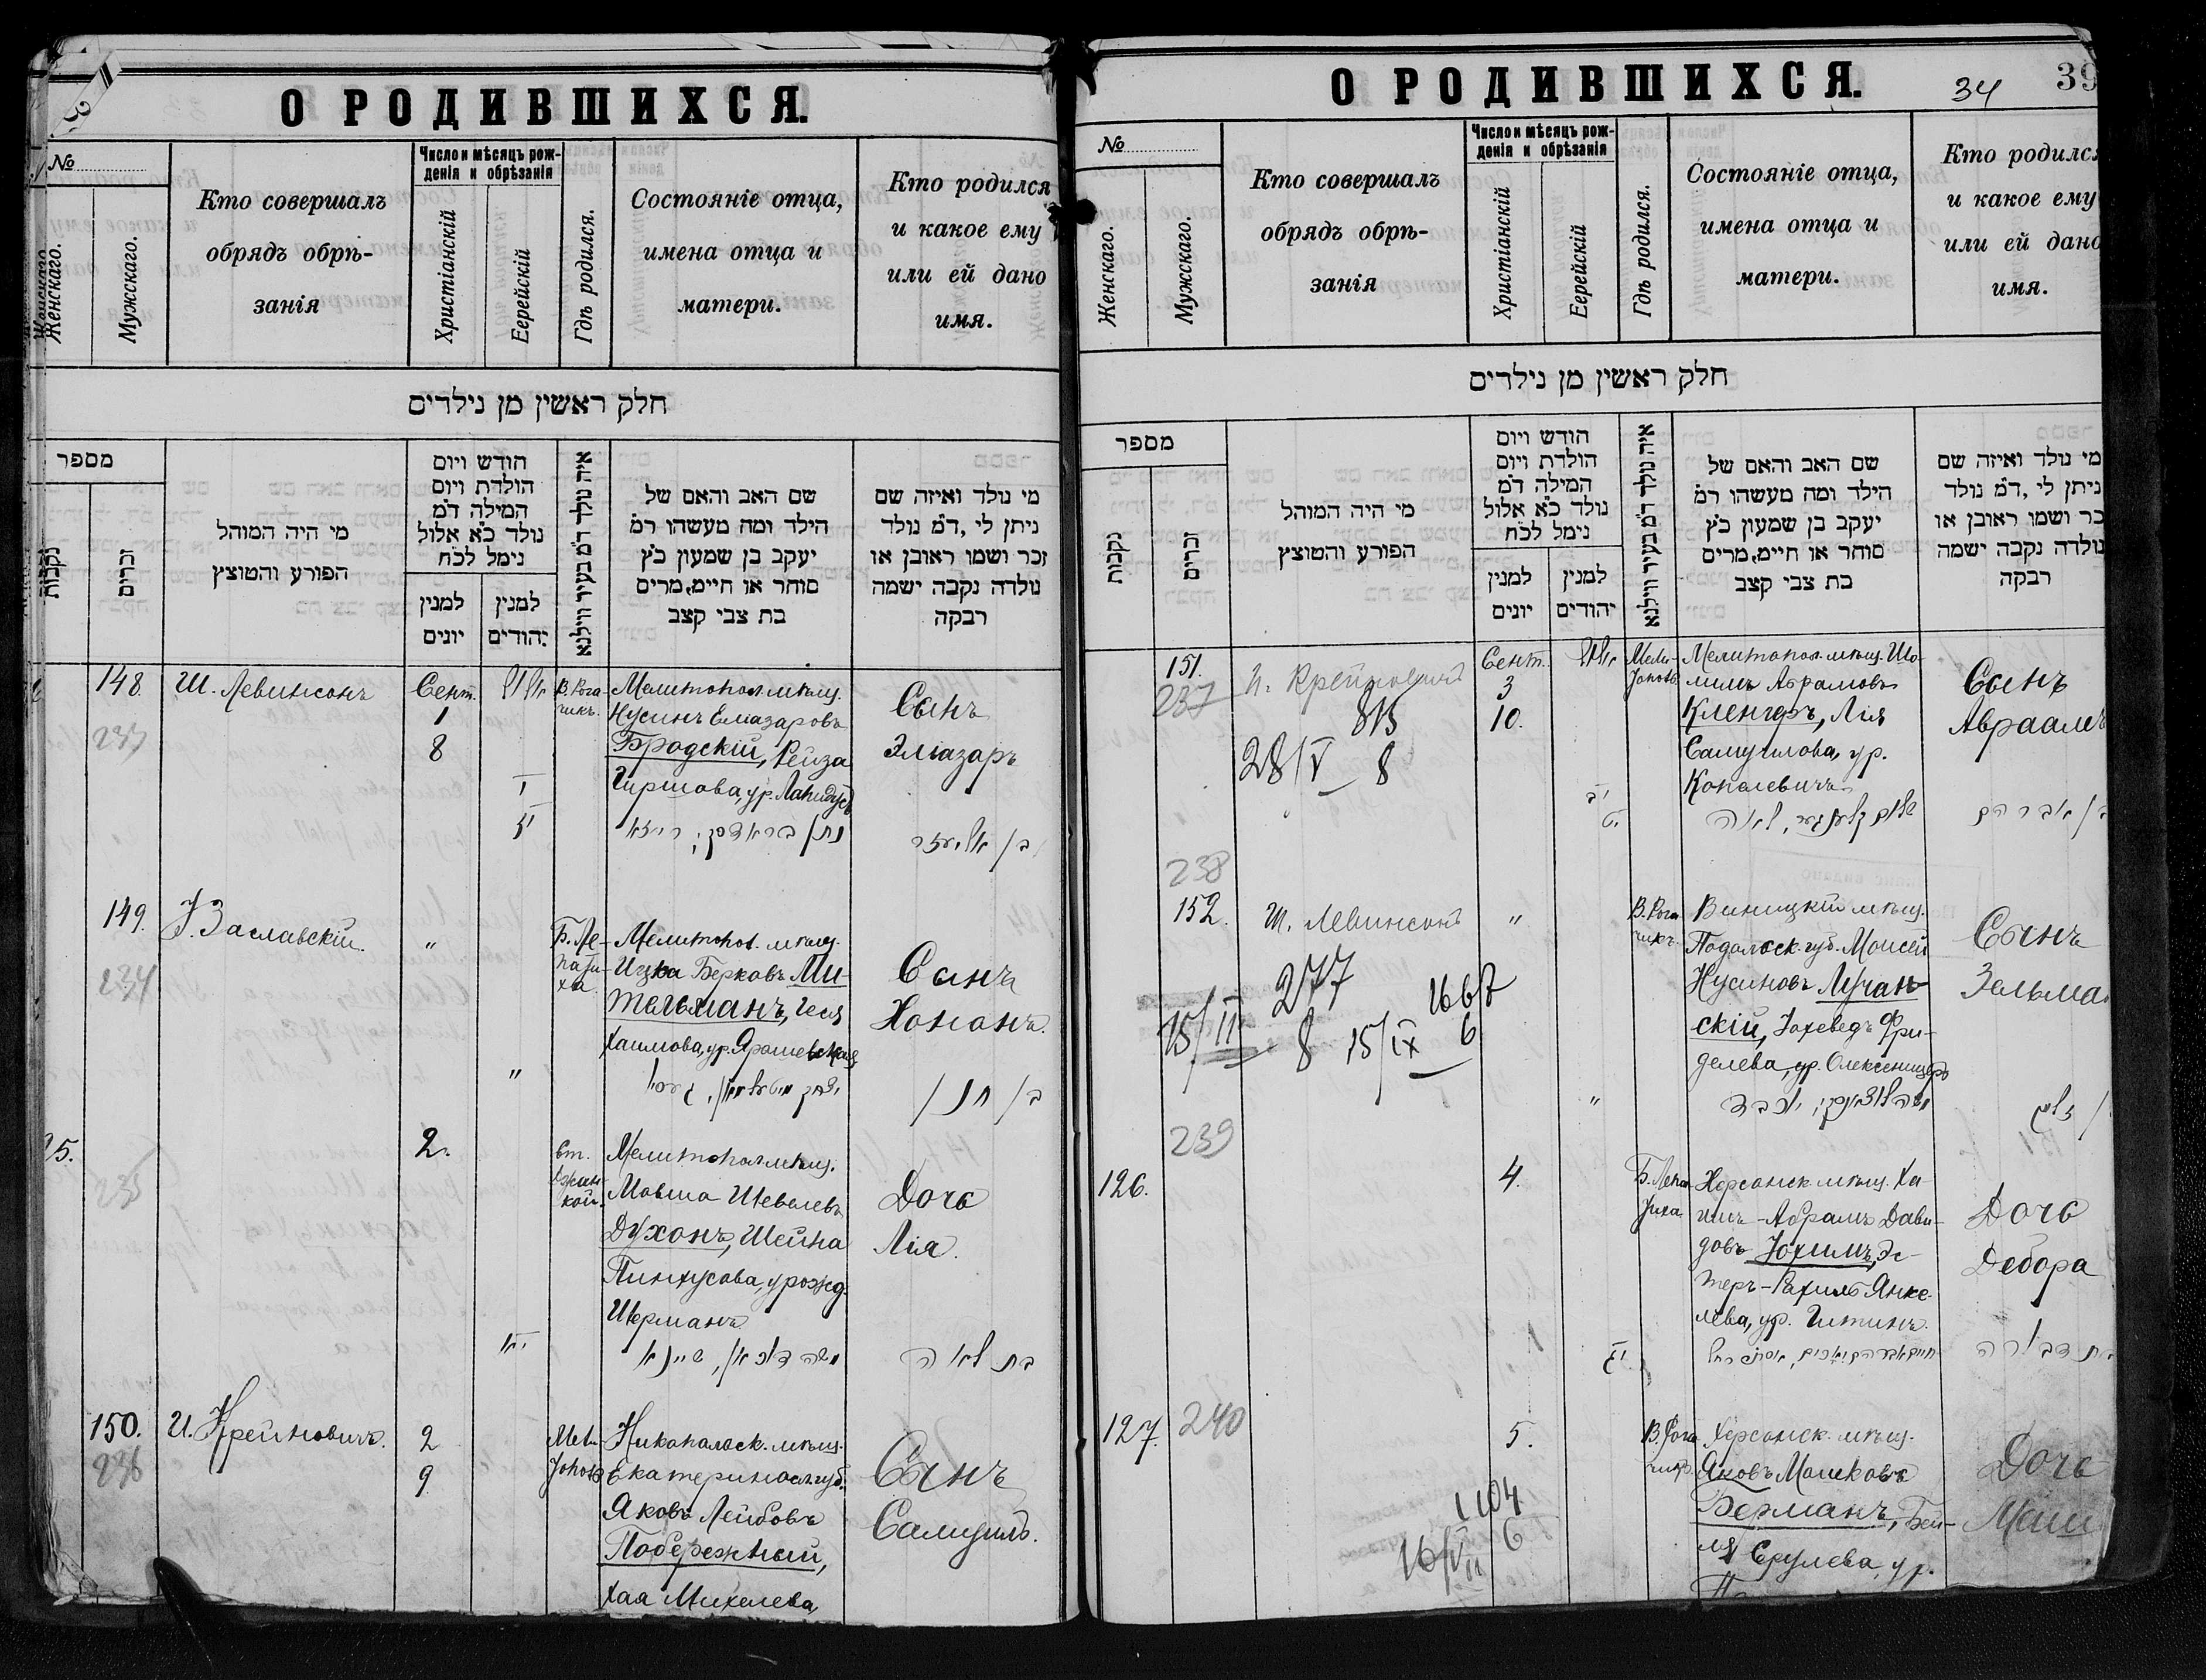 О РОДИВШИХСЯ.
№
Женскаго.
Мужскаго.
Кто совершалъ
обрядъ обрѣ-
занія
Число и мѣсяцъ рож-
денія и обрѣзанія
Христіанскій
Еерейскій
Гдѣ родился.
Состояніе отца,
имена отца и
матери.
Кто родился
и какое ему
или ей дано
имя.
חלק ראשין מן נילדים
מספר
נקבות
זכרים
מי היה המוהל
הפורע והמוצץ
חודש ויום
הולדת ויום
המילה ד״מ
נולד כ״א אלול
נימל לכ״ח
למנין
יונים
למנין
יהודים
איה נולד ד״מ בעיר ווילנא
שם האב והאם של
הילד ומה מעשהו ר״מ
יעקב בן שמעון כ״ץ
סוחר או חיים, מרים
בת צבי קצב
מי נולד ואיזה שם
ניתן לי, ד״מ נולד
זכר ושמו ראובן או
נולדה נקבה ישמה
רבקה
148.
237
Ш. Левинсонъ
Сент.
1
8
אלול
י
יז
В. Рога-
чикъ.
Мелитопол. мѣщ.
Нусинъ Елiазаровъ
Бродскій, Рейза
Гиршова, ур. Лапидусъ
נתן בראדסקי, רייזא
Сынъ
Эліазаръ
בן אליעזר
149.
234
Заславскій.
"
Б. Ле-
пати-
ха
"
Мелитопол. мѣщ.
Ицка Берковъ Ми-
тельманъ, Геся
Хаимова, ур. Ярошевская
Сынъ
Хононъ.
בן חנן
25.
235
2.
ст.
יא
Мелитопол. мѣщ.
Мовша Шевелевъ
Духонъ, Шейна
Пинхусова, урожд.
Шерманъ
משה דוכאן, שיינא
Дочь
Лія.
בת לאה
150.
236
И. Крейновичъ.
2
9
Мели-
тополь
Никопольск. мѣщ.
Екатеринослгуб.
Яковъ Лейбовъ
Побережный,
Хая Михелева,
Сынъ
Самуилъ.
О РОДИВШИХСЯ.
34
39
№
Женскаго.
Мужскаго.
Кто совершалъ
обрядъ обрѣ-
занія
Число и мѣсяцъ рож-
денія и обрѣзанія
Христіанскій
Еерейскій
Гдѣ родился.
Состояніе отца,
имена отца и
матери.
Кто родился
и какое ему
или ей дано
имя.
חלק ראשין מן נילדים
מספר
נקבות
זכרים
מי היה המוהל
הפורע והמוצץ
חודש ויום
הולדת ויום
המילה ד״מ
נולד כ״א אלול
נימל לכ״ח
למנין
יונים
למנין
יהודים
איה נולד ד״מ בעיר ווילנא
שם האב והאם של
הילד ומה מעשהו ר״מ
יעקב בן שמעון כ״ץ
סוחר או חיים, מרים
בת צבי קצב
מי נולד ואיזה שם
ניתן לי, ד״מ נולד
זכר ושמו ראובן או
נולדה נקבה ישמה
רבקה
151.
237
И. Крейновичъ
815
28/V 8
Сент.
3
10.
אלול
יב
יט
Мели-
тополь
Мелитопол. мѣщ. Шо-
лимъ Абрамовъ
Кленгеръ, Лія
Самуилова, ур.
Копелевичъ
Сынъ
Авраамъ
בן אברהם
238
152.
Ш. Левинсонъ
277
15/II 8
1667
15/IX 6
"
"
В. Рога
чикъ.
Виницкій мѣщ.
Подольск. губ. Моисей
Нусиновъ Лучан-
скій, Іохеведъ Фри-
делева, ур.
Сынъ
Зельма
239
126.
4.
יג
Б. Лепа
тиха
Херсонск. мѣщ. Ха-
имъ-Абрамъ Дави-
довъ Іохимъ, Эс-
теръ-Рахиль Янке-
лева, ур. Гитинъ.
Дочь
Дебора
בת דבורה
127.
240
1104
16/VII 6
5.
В. Рога
чикъ.
Херсонск. мѣщ.
Яковъ Мошковъ
Берманъ, Бей-
ля Срулева, ур.
Дочь